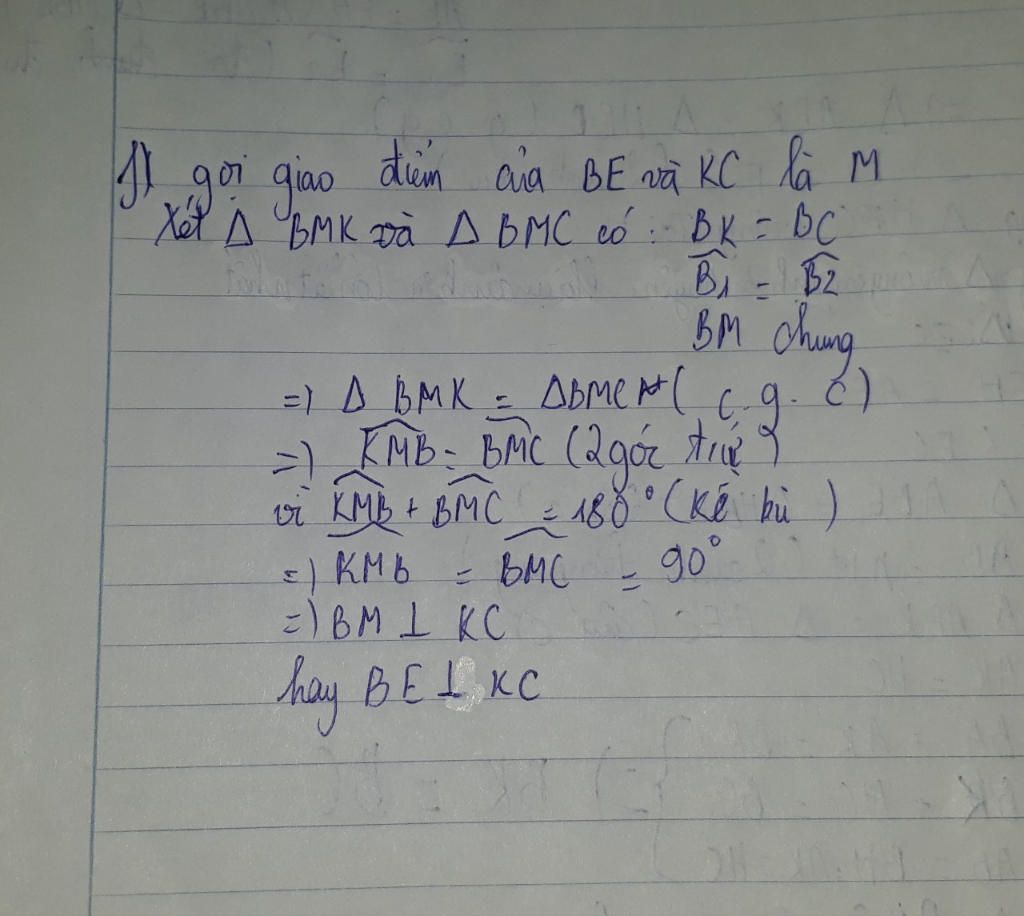 f) gọi giao điểm của BE và KC là M
Xét Δ BMK và Δ BMC có: BK = BC
B̂1 = B̂2
BM chung
=) Δ BMK = ΔBMC ( c. g. c)
=) KMB = BMC (2 góc
vì KMB + BMC = 180° (Kề bù)
=) KMB = BMC = 90°
=) BM ⊥ KC
hay BE ⊥ KC